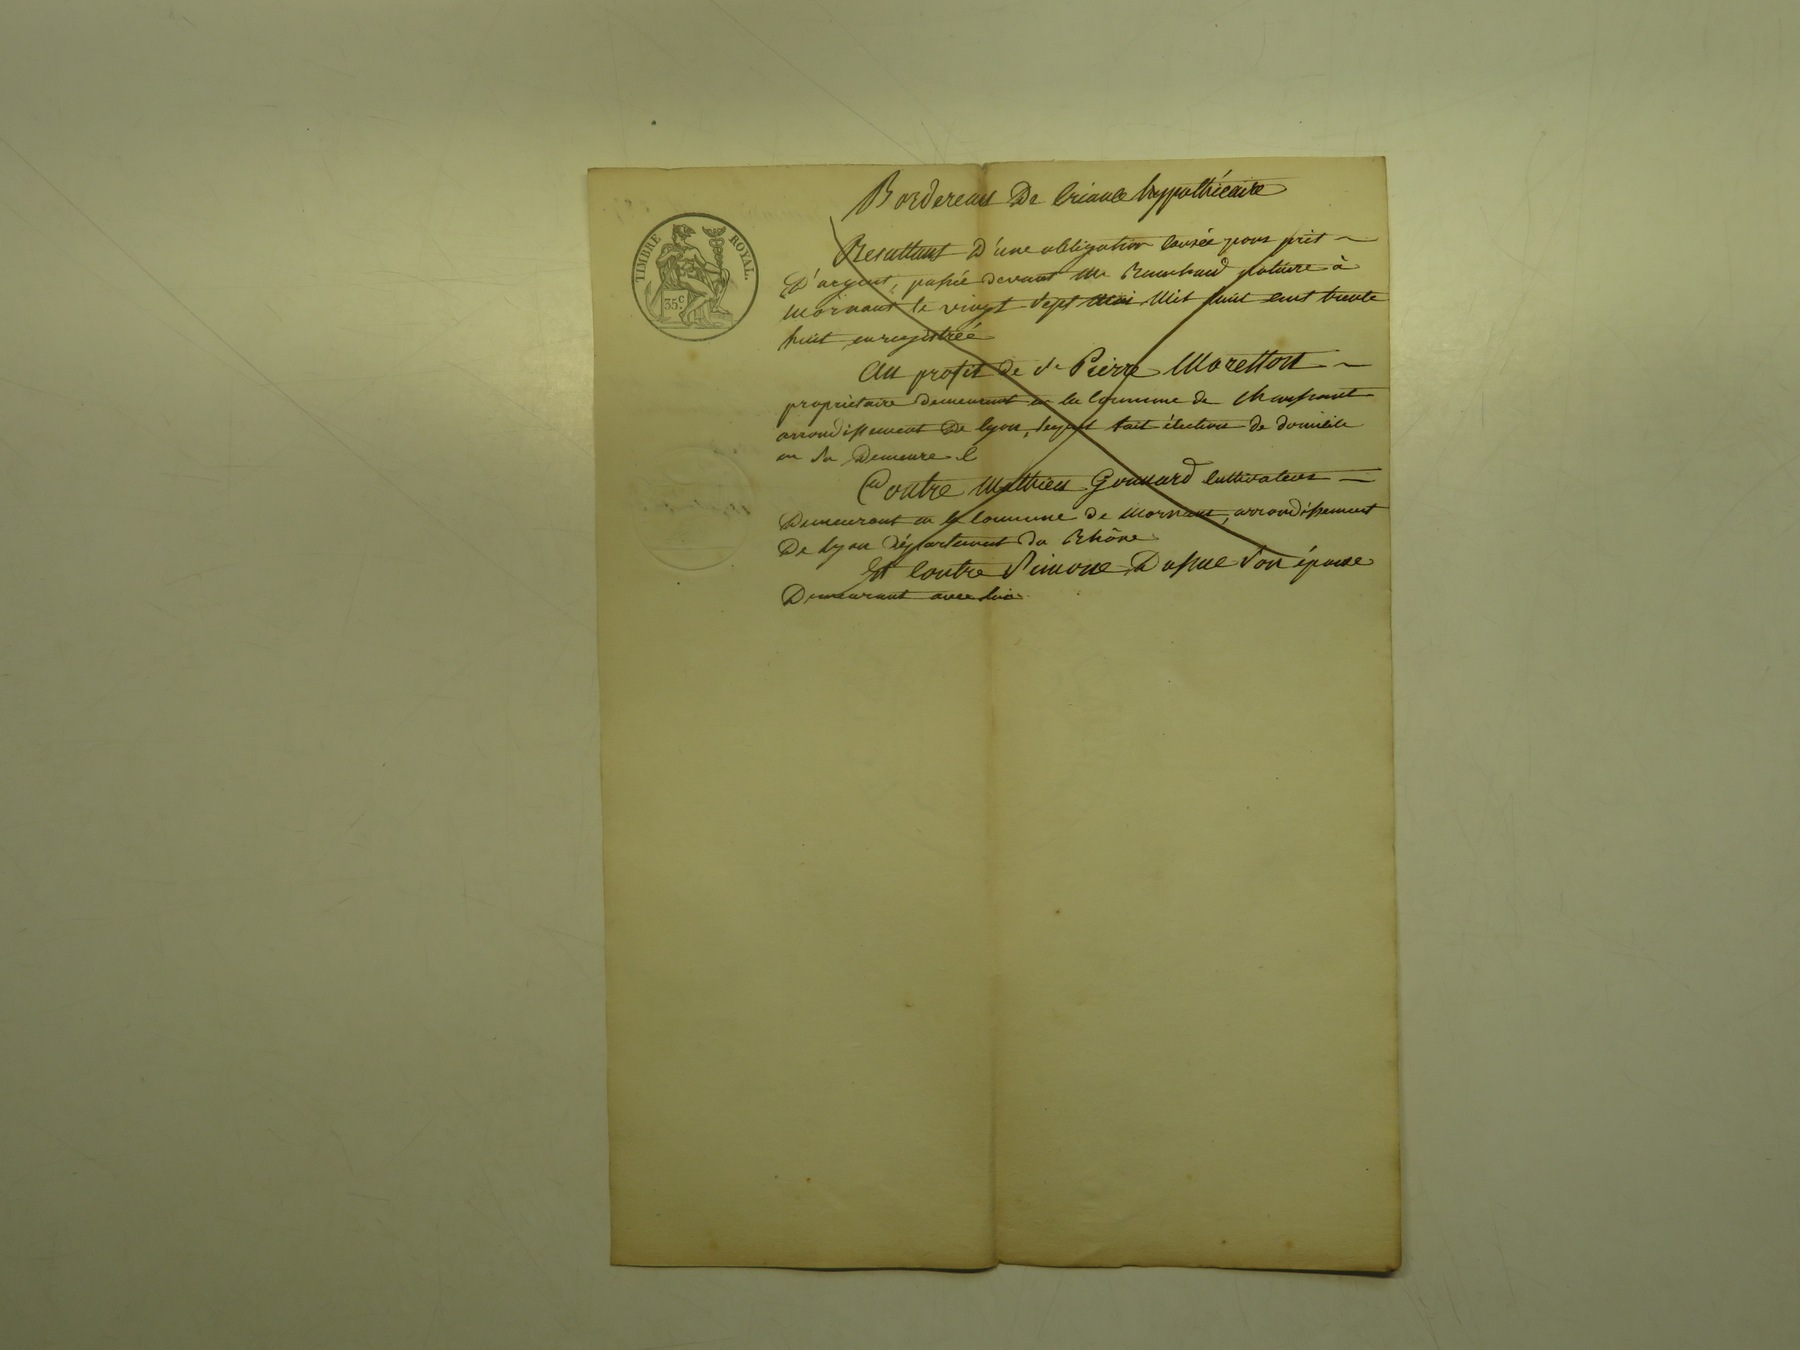 TIMBRE ROYAL
35 c.
Bordereau De Criance hyppothécaire
Resultant D'une obligation Causée pour prêt
D'argent, passée devant Me notaire à
Mornant le vingt sept Mai Mil huit cent trente
huit enregistréé
Au profit de Sr Pierre Moretton
propriétaire demeurant en la Commune de
arrondissement De lyon, lequel fait élection de domicile
en Sa Demeure
Contre Mathieu Gonnard Cultivateur
Demeurant en la Commune de Mornant, arrondissement
De Lyon département du Rhône
Et Contre Simone Son épouse
Demeurant avec lui